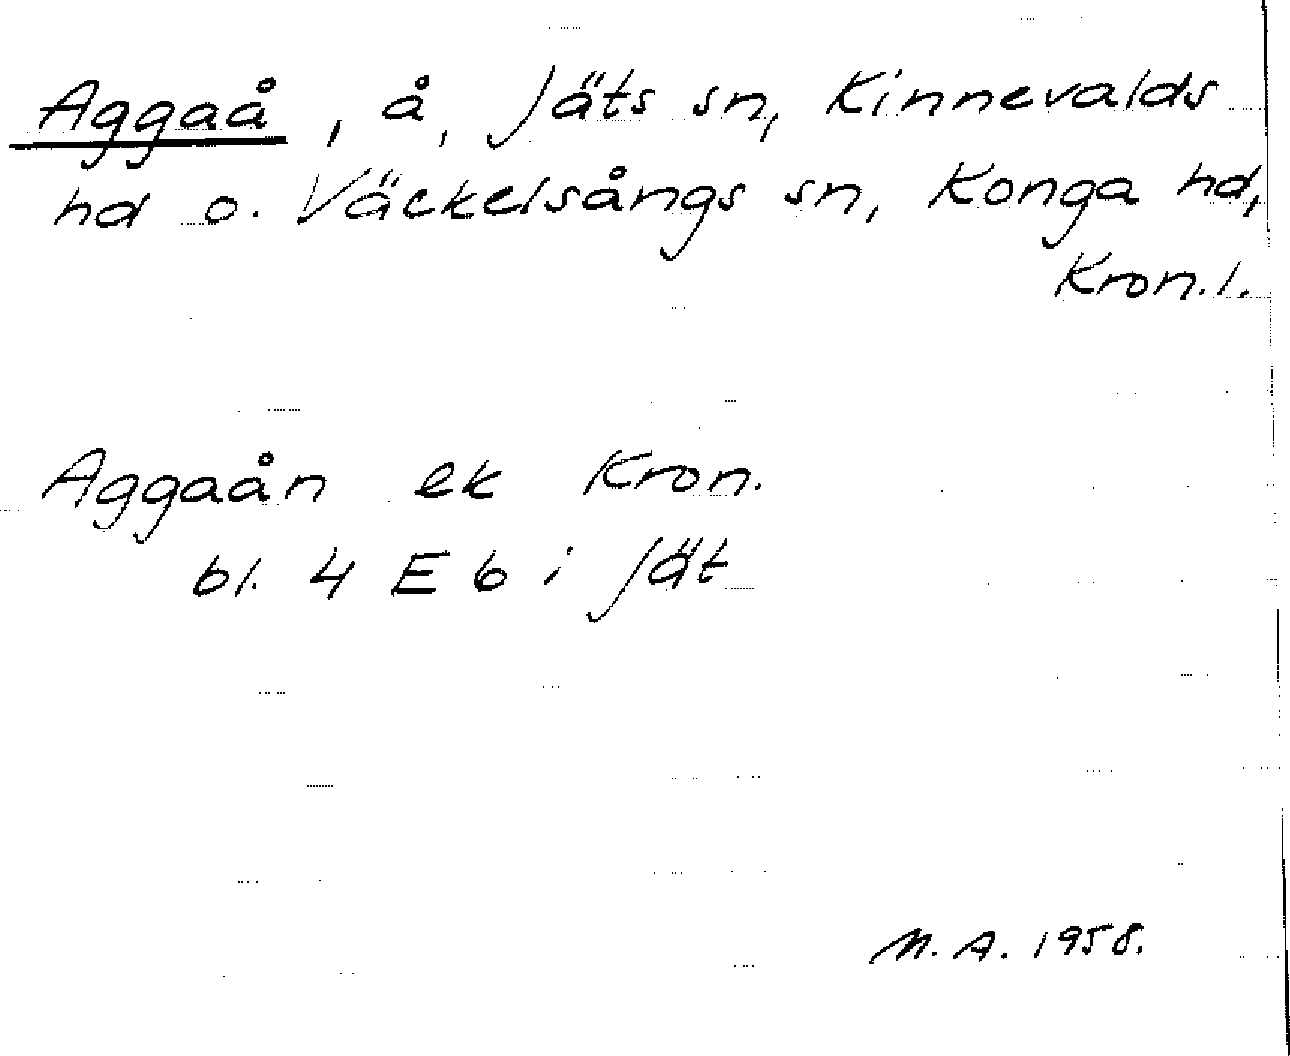 Aggaå, å, Jäts sn, Kinnevalds
hd o. Väckelsångs sn, Konga hd,
Kron. l.
Aggaån ek Kron.
bl. 4 E b i Jät
M. A. 1958.